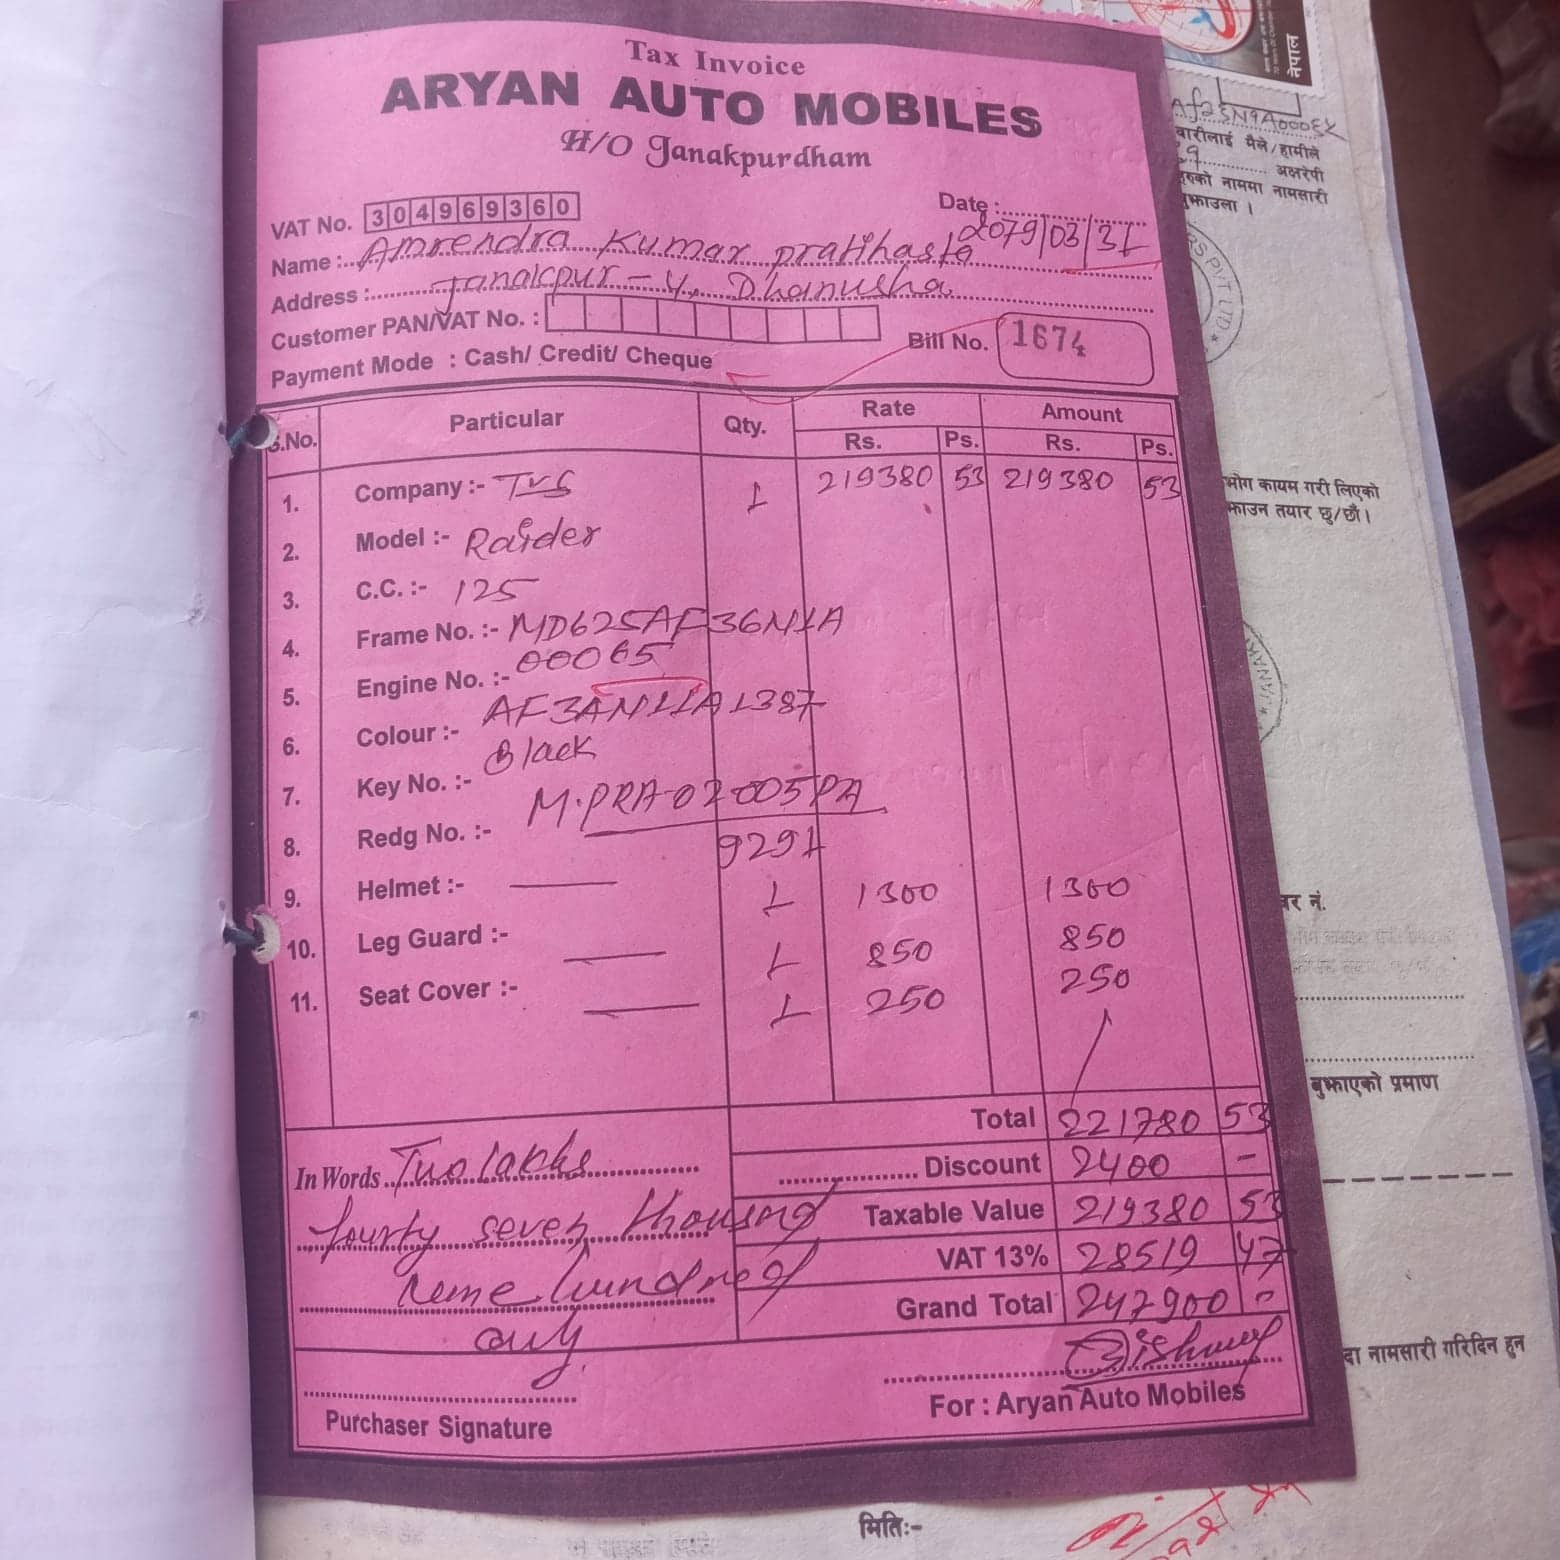 Tax Invoice
ARYAN AUTO MOBILES
H/O Janakpurdham
VAT No. 304969360
Date :.......... 2079/03/31
Name :.. Amrendra Kumar Pratihasta
Address :........ Janakpur - 4, Dhanusha
Customer PAN/VAT No. :
Bill No. 1674
Payment Mode : Cash/ Credit/ Cheque
S.No. Particular Qty. Rate Amount
Rs. Ps. Rs. Ps.
1. Company :- TVS 1 219380 53 219380 53
2. Model :- Raider
3. C.C. :- 125
4. Frame No. :- MD625AF36N1A
00065
5. Engine No. :-
AF3AN11A1387
6. Colour :- Black
7. Key No. :-
M.PRA-02-005PA
8. Redg No. :- 9291
9. Helmet :- — 1 1300 1300
10. Leg Guard :- — 1 850 850
11. Seat Cover :- — 1 250 250
Total 221780 53
In Words.. Two lakhs
Discount 2400 -
fourty seven thousand
Taxable Value 219380 53
VAT 13% 28519 47
hundred
Grand Total 247900 -
only.
Purchaser Signature
For : Aryan Auto Mobiles
नेपाल
वारीलाई मैले/हामीले
अक्षरेपी
नाममा नामसारी
बुझाउला ।
भोग कायम गरी लिएको
तयार छु/छौं।
नं.
बुझाएको प्रमाण
दा नामसारी गरिदिन हुन
मिति:-